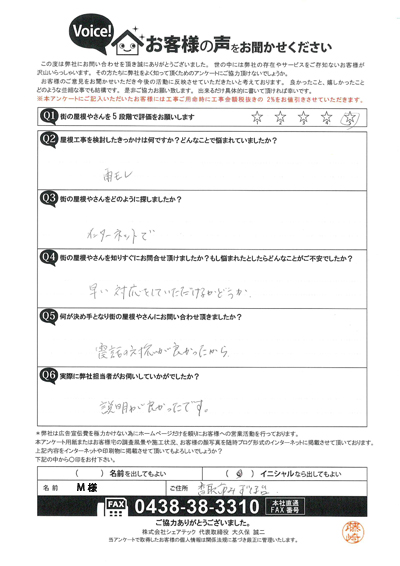 Voice!
お客様の声をお聞かせください
この度は弊社にお問い合わせを頂き誠にありがとうございました。世の中には弊社の存在やサービスをご存知ないお客様が
沢山いらっしゃいます。その方たちに弊社をよく知って頂くためのアンケートにご協力頂けないでしょうか。
お客様のご意見をお聞かせいただき今後の活動に反映させていただきたいと考えております。良かったこと、嬉しかったこと
どのような些細な事でも結構です。是非ご協力お願い致します。出来るだけ具体的に書いて頂ければ幸いです。
※本アンケートにご記入いただいたお客様には工事ご用命時に工事金額税抜きの 2%をお値引きさせていただきます。
Q1 街の屋根やさんを5段階で評価をお願いします
Q2 屋根工事を検討したきっかけは何ですか?どんなことで悩まれていましたか?
雨モレ
Q3 街の屋根やさんをどのように探しましたか?
インターネットで
Q4 街の屋根やさんを知りすぐにお問合せ頂けましたか?もし悩まれたとしたらどんなことがご不安でしたか?
早い対応をしていただけるかどうか。
Q5 何が決め手となり街の屋根やさんにお問い合わせ頂きましたか?
電話の対応が良かったから
Q6 実際に弊社担当者がお伺いしていかがでしたか?
説明が良かったです。
※弊社は広告宣伝費を極力かけない為にホームページだけを頼りにお客様への営業活動を行っております。
本アンケート用紙またはお客様宅の調査風景や施工状況、お客様の顔写真を随時ブログ形式のインターネットに掲載させて頂いております。
上記内容をインターネットや印刷物に掲載させて頂いてもよろしいでしょうか?
下記の中から○印をお付下さい。
( )名前を出してもよい ( )イニシャルなら出してもよい
名前 M様 ご住所
FAX 0438-38-3310 本社直通 FAX番号
ご協力ありがとうございました。
株式会社シェアテック 代表取締役 大久保 誠二
当アンケートで取得したお客様の個人情報は関係法規に基づき厳正に管理いたします。